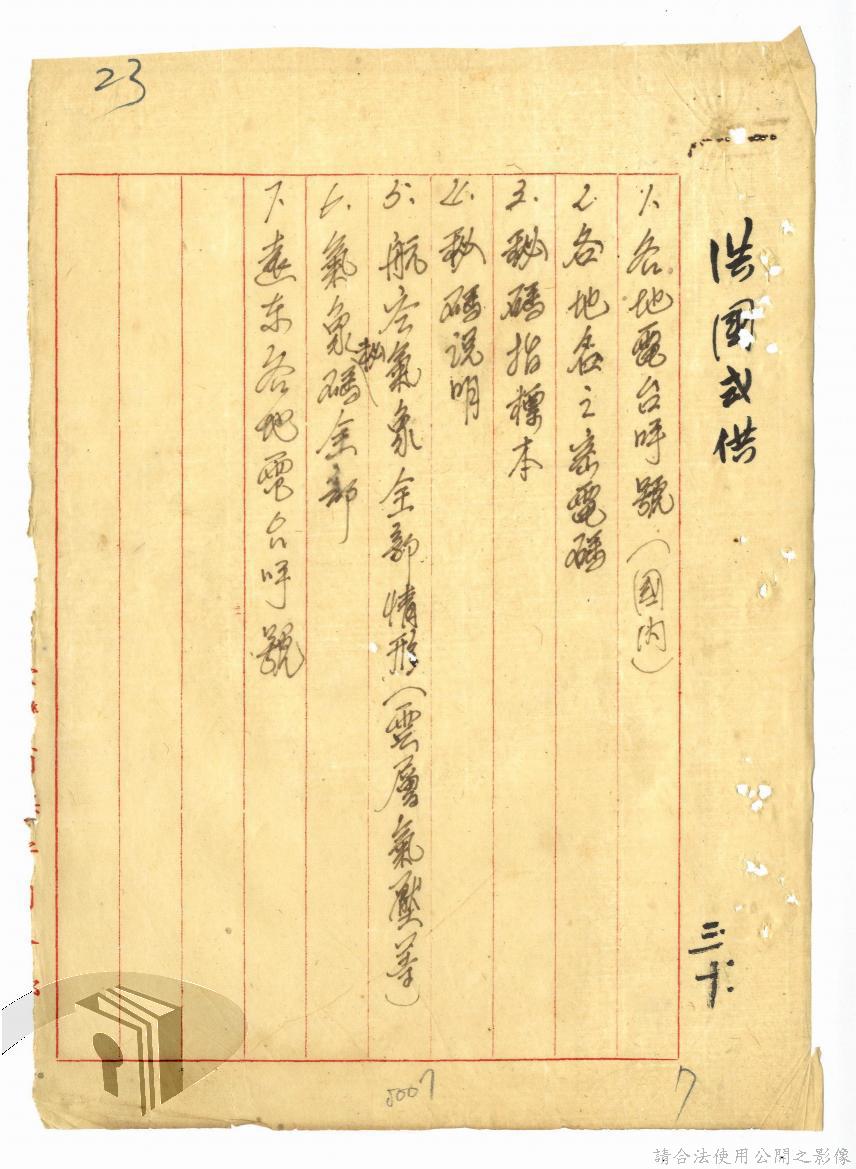 23
洪國式供
三十
1. 各地電台呼號(國內)
2. 各地名之密電碼
3. 秘碼指標本
4. 秘碼說明
5. 航空氣象全部情形(雲層氣壓等)
6. 氣象秘碼全部
7. 遠东各地電台呼號
5007
7
請合法使用公開之影像